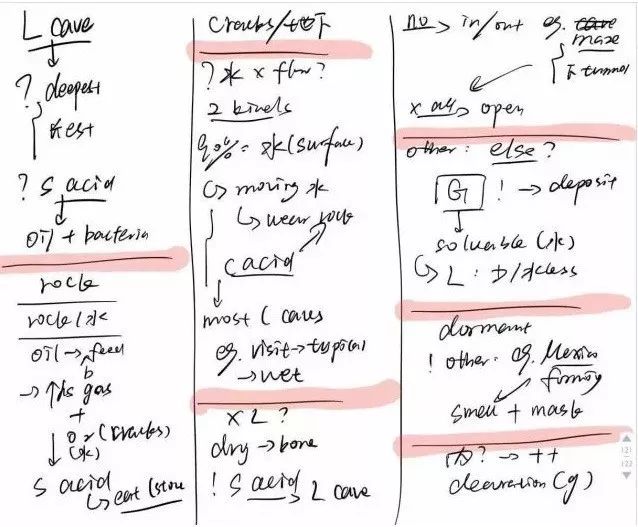 L cave
? deepest
长est
? S acid
oil + bacteria
rock
rock/水
oil → feed
b
→ ↑ S gas
+
O2 (cracks)
(水)
S acid
↳ eat (stone
cracks/地下
? 水 x flow?
2 kinds
90% = 水 (surface)
↳ moving 水
↳ wear rock
C acid
most C caves
eg. visit → typical
→ wet
x L ?
dry → bone
! S acid → L cave
no → in/out eg. maze
tunnel
x any open
other: else?
G ! → deposit
soluable (水)
↳ L :
dormant
! other: eg. Mexico
forming
smell + mask
内? → ++
decoration (g)
121
122